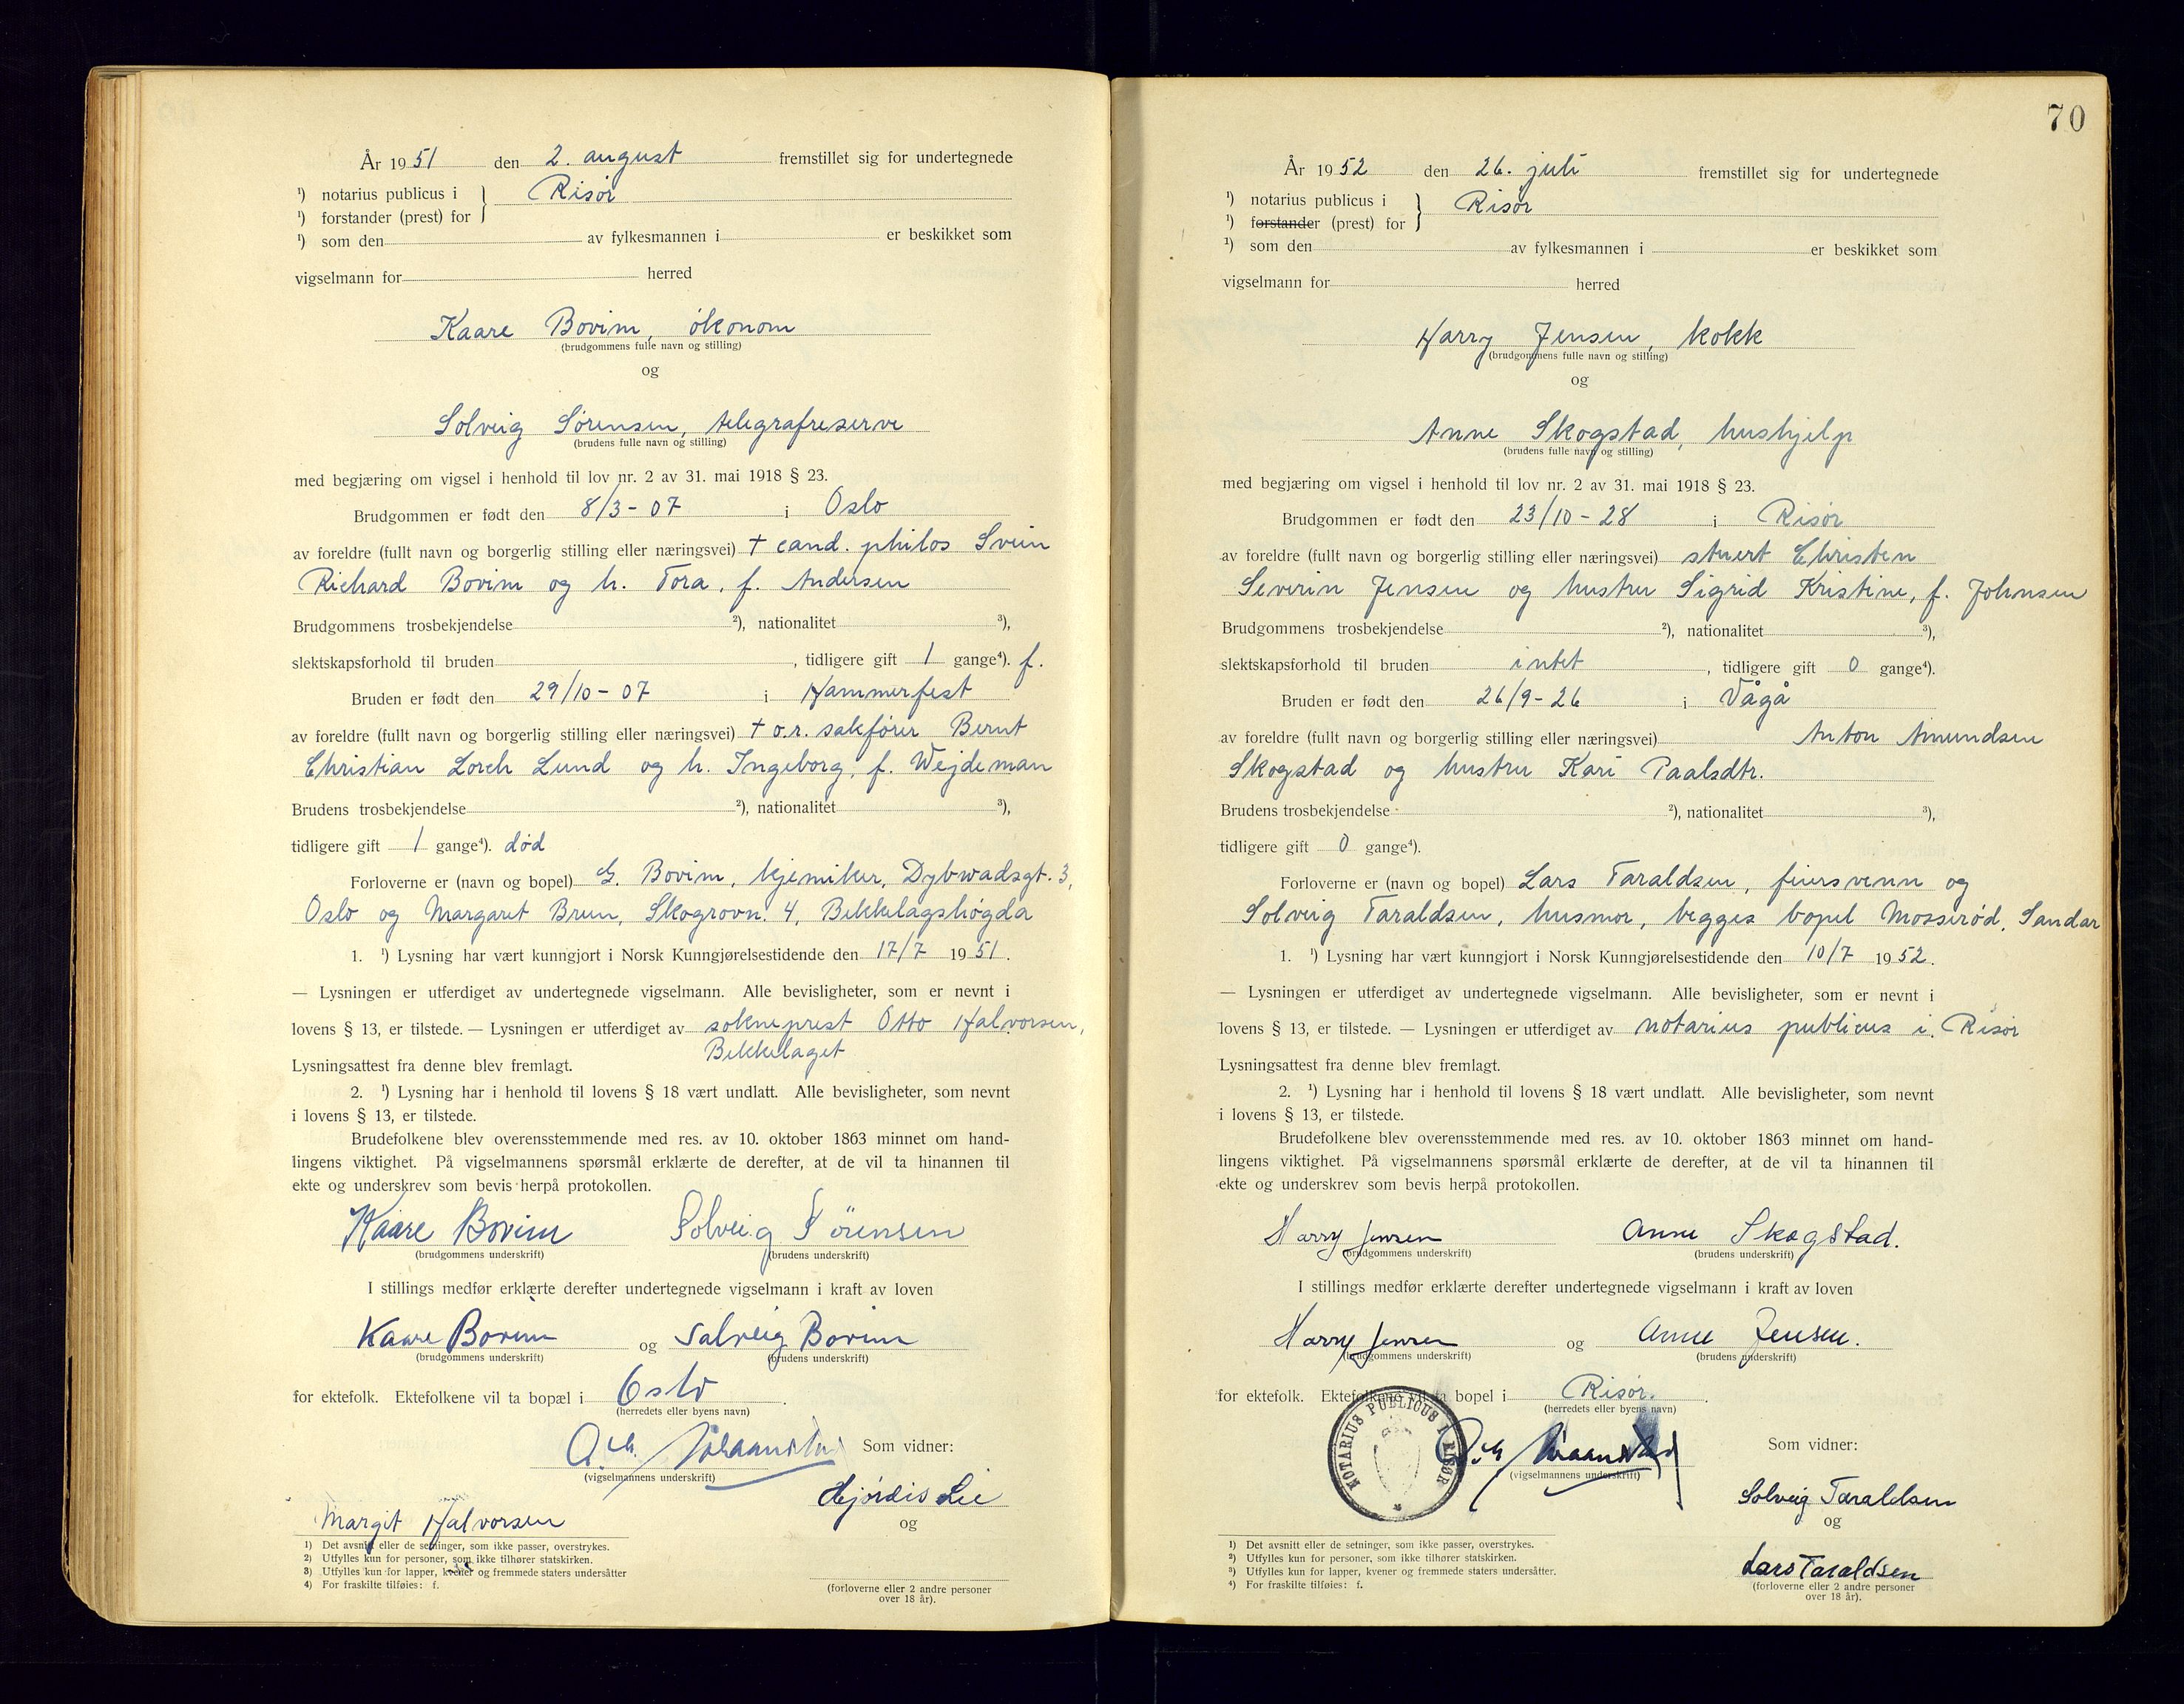 År 1951 den 2. august fremstillet sig for undertegnede
¹) notarius publicus i } Risør
¹) forstander (prest) for
¹) som den av fylkesmannen i er beskikket som
vigselmann for herred
Kaare Bovim, økonom
(brudgommens fulle navn og stilling)
og
Solveig Sørensen, telegrafreserve
(brudens fulle navn og stilling)
med begjæring om vigsel i henhold til lov nr. 2 av 31. mai 1918 § 23.
Brudgommen er født den 8/3-07 i Oslo
av foreldre (fullt navn og borgerlig stilling eller næringsvei) + cand. philos Svein
Richard Bovim og h. Tora, f. Andersen
Brudgommens trosbekjendelse ²), nationalitet ³),
slektskapsforhold til bruden , tidligere gift 1 gange⁴). f.
Bruden er født den 29/10-07 i Hammerfest
av foreldre (fullt navn og borgerlig stilling eller næringsvei) + o.r. sakfører Bernt
Christian Lorch Lund og h. Ingeborg, f. Wejdeman
Brudens trosbekjendelse ²), nationalitet ³),
tidligere gift 1 gange⁴). død
Forloverne er (navn og bopel) G. Bovim, kjemiker, Dybwadsgt. 3,
Oslo og Margaret Brun, Skogrovn. 4, Bekkelagshøgda
1. ¹) Lysning har vært kunngjort i Norsk Kunngjørelsestidende den 17/7 1951.
— Lysningen er utferdiget av undertegnede vigselmann. Alle bevisligheter, som er nevnt i
lovens § 13, er tilstede. — Lysningen er utferdiget av sokneprest Otto Halvorsen,
Bekkelaget
Lysningsattest fra denne blev fremlagt.
2. ¹) Lysning har i henhold til lovens § 18 vært undlatt. Alle bevisligheter, som nevnt
i lovens § 13, er tilstede.
Brudefolkene blev overensstemmende med res. av 10. oktober 1863 minnet om hand-
lingens viktighet. På vigselmannens spørsmål erklærte de derefter, at de vil ta hinannen til
ekte og underskrev som bevis herpå protokollen.
Kaare Bovim Solveig Sörensen
(brudgommens underskrift) (brudens underskrift)
I stillings medfør erklærte derefter undertegnede vigselmann i kraft av loven
Kaare Bovim og Solveig Bovim
(brudgommens underskrift) (brudens underskrift)
for ektefolk. Ektefolkene vil ta bopæl i Oslo.
(herredets eller byens navn)
Som vidner:
(vigselmannens underskrift)
Hjørdis Lie
og
Margit Halvorsen
1) Det avsnitt eller de setninger, som ikke passer, overstrykes.
2) Utfylles kun for personer, som ikke tilhører statskirken.
3) Utfylles kun for lapper, kvener og fremmede staters undersåtter
4) For fraskilte tilføies: f.
(forloverne eller 2 andre personer
over 18 år).
70
År 1952 den 26. juli fremstillet sig for undertegnede
¹) notarius publicus i } Risør
¹) forstander (prest) for
¹) som den av fylkesmannen i er beskikket som
vigselmann for herred
Harry Jensen, kokk
(brudgommens fulle navn og stilling)
og
Anne Skogstad, hushjelp
(brudens fulle navn og stilling)
med begjæring om vigsel i henhold til lov nr. 2 av 31. mai 1918 § 23.
Brudgommen er født den 23/10-28 i Risør
av foreldre (fullt navn og borgerlig stilling eller næringsvei) stuert Christen
Severin Jensen og hustru Sigrid Kristine, f. Johnsen
Brudgommens trosbekjendelse ²), nationalitet ³),
slektskapsforhold til bruden intet , tidligere gift 0 gange⁴).
Bruden er født den 26/9-26 i Vågå
av foreldre (fullt navn og borgerlig stilling eller næringsvei) Anton Amundsen
Skogstad og hustru Kari Paalsdtr.
Brudens trosbekjendelse ²), nationalitet ³),
tidligere gift 0 gange⁴).
Forloverne er (navn og bopel) Lars Taraldsen, feiersvenn og
Solveig Taraldsen, husmor, begges bopel Mosserød, Sandar
1. ¹) Lysning har vært kunngjort i Norsk Kunngjørelsestidende den 10/7 1952.
— Lysningen er utferdiget av undertegnede vigselmann. Alle bevisligheter, som er nevnt i
lovens § 13, er tilstede. — Lysningen er utferdiget av notarius publicus i Risør
Lysningsattest fra denne blev fremlagt.
2. ¹) Lysning har i henhold til lovens § 18 vært undlatt. Alle bevisligheter, som nevnt
i lovens § 13, er tilstede.
Brudefolkene blev overensstemmende med res. av 10. oktober 1863 minnet om hand-
lingens viktighet. På vigselmannens spørsmål erklærte de derefter, at de vil ta hinannen til
ekte og underskrev som bevis herpå protokollen.
Harry Jensen Anne Skogstad.
(brudgommens underskrift) (brudens underskrift)
I stillings medfør erklærte derefter undertegnede vigselmann i kraft av loven
Harry Jensen og Anne Jensen.
(brudgommens underskrift) (brudens underskrift)
for ektefolk. Ektefolkene vil ta bopel i Risør.
(herredets eller byens navn)
NOTARIUS PUBLICUS I RISØR
Som vidner:
(vigselmannens underskrift)
Solveig Taraldsen
og
Lars Taraldsen
(forloverne eller 2 andre personer
over 18 år).
1) Det avsnitt eller de setninger, som ikke passer, overstrykes.
2) Utfylles kun for personer, som ikke tilhører statskirken.
3) Utfylles kun for lapper, kvener og fremmede staters undersåtter.
4) For fraskilte tilføies: f.